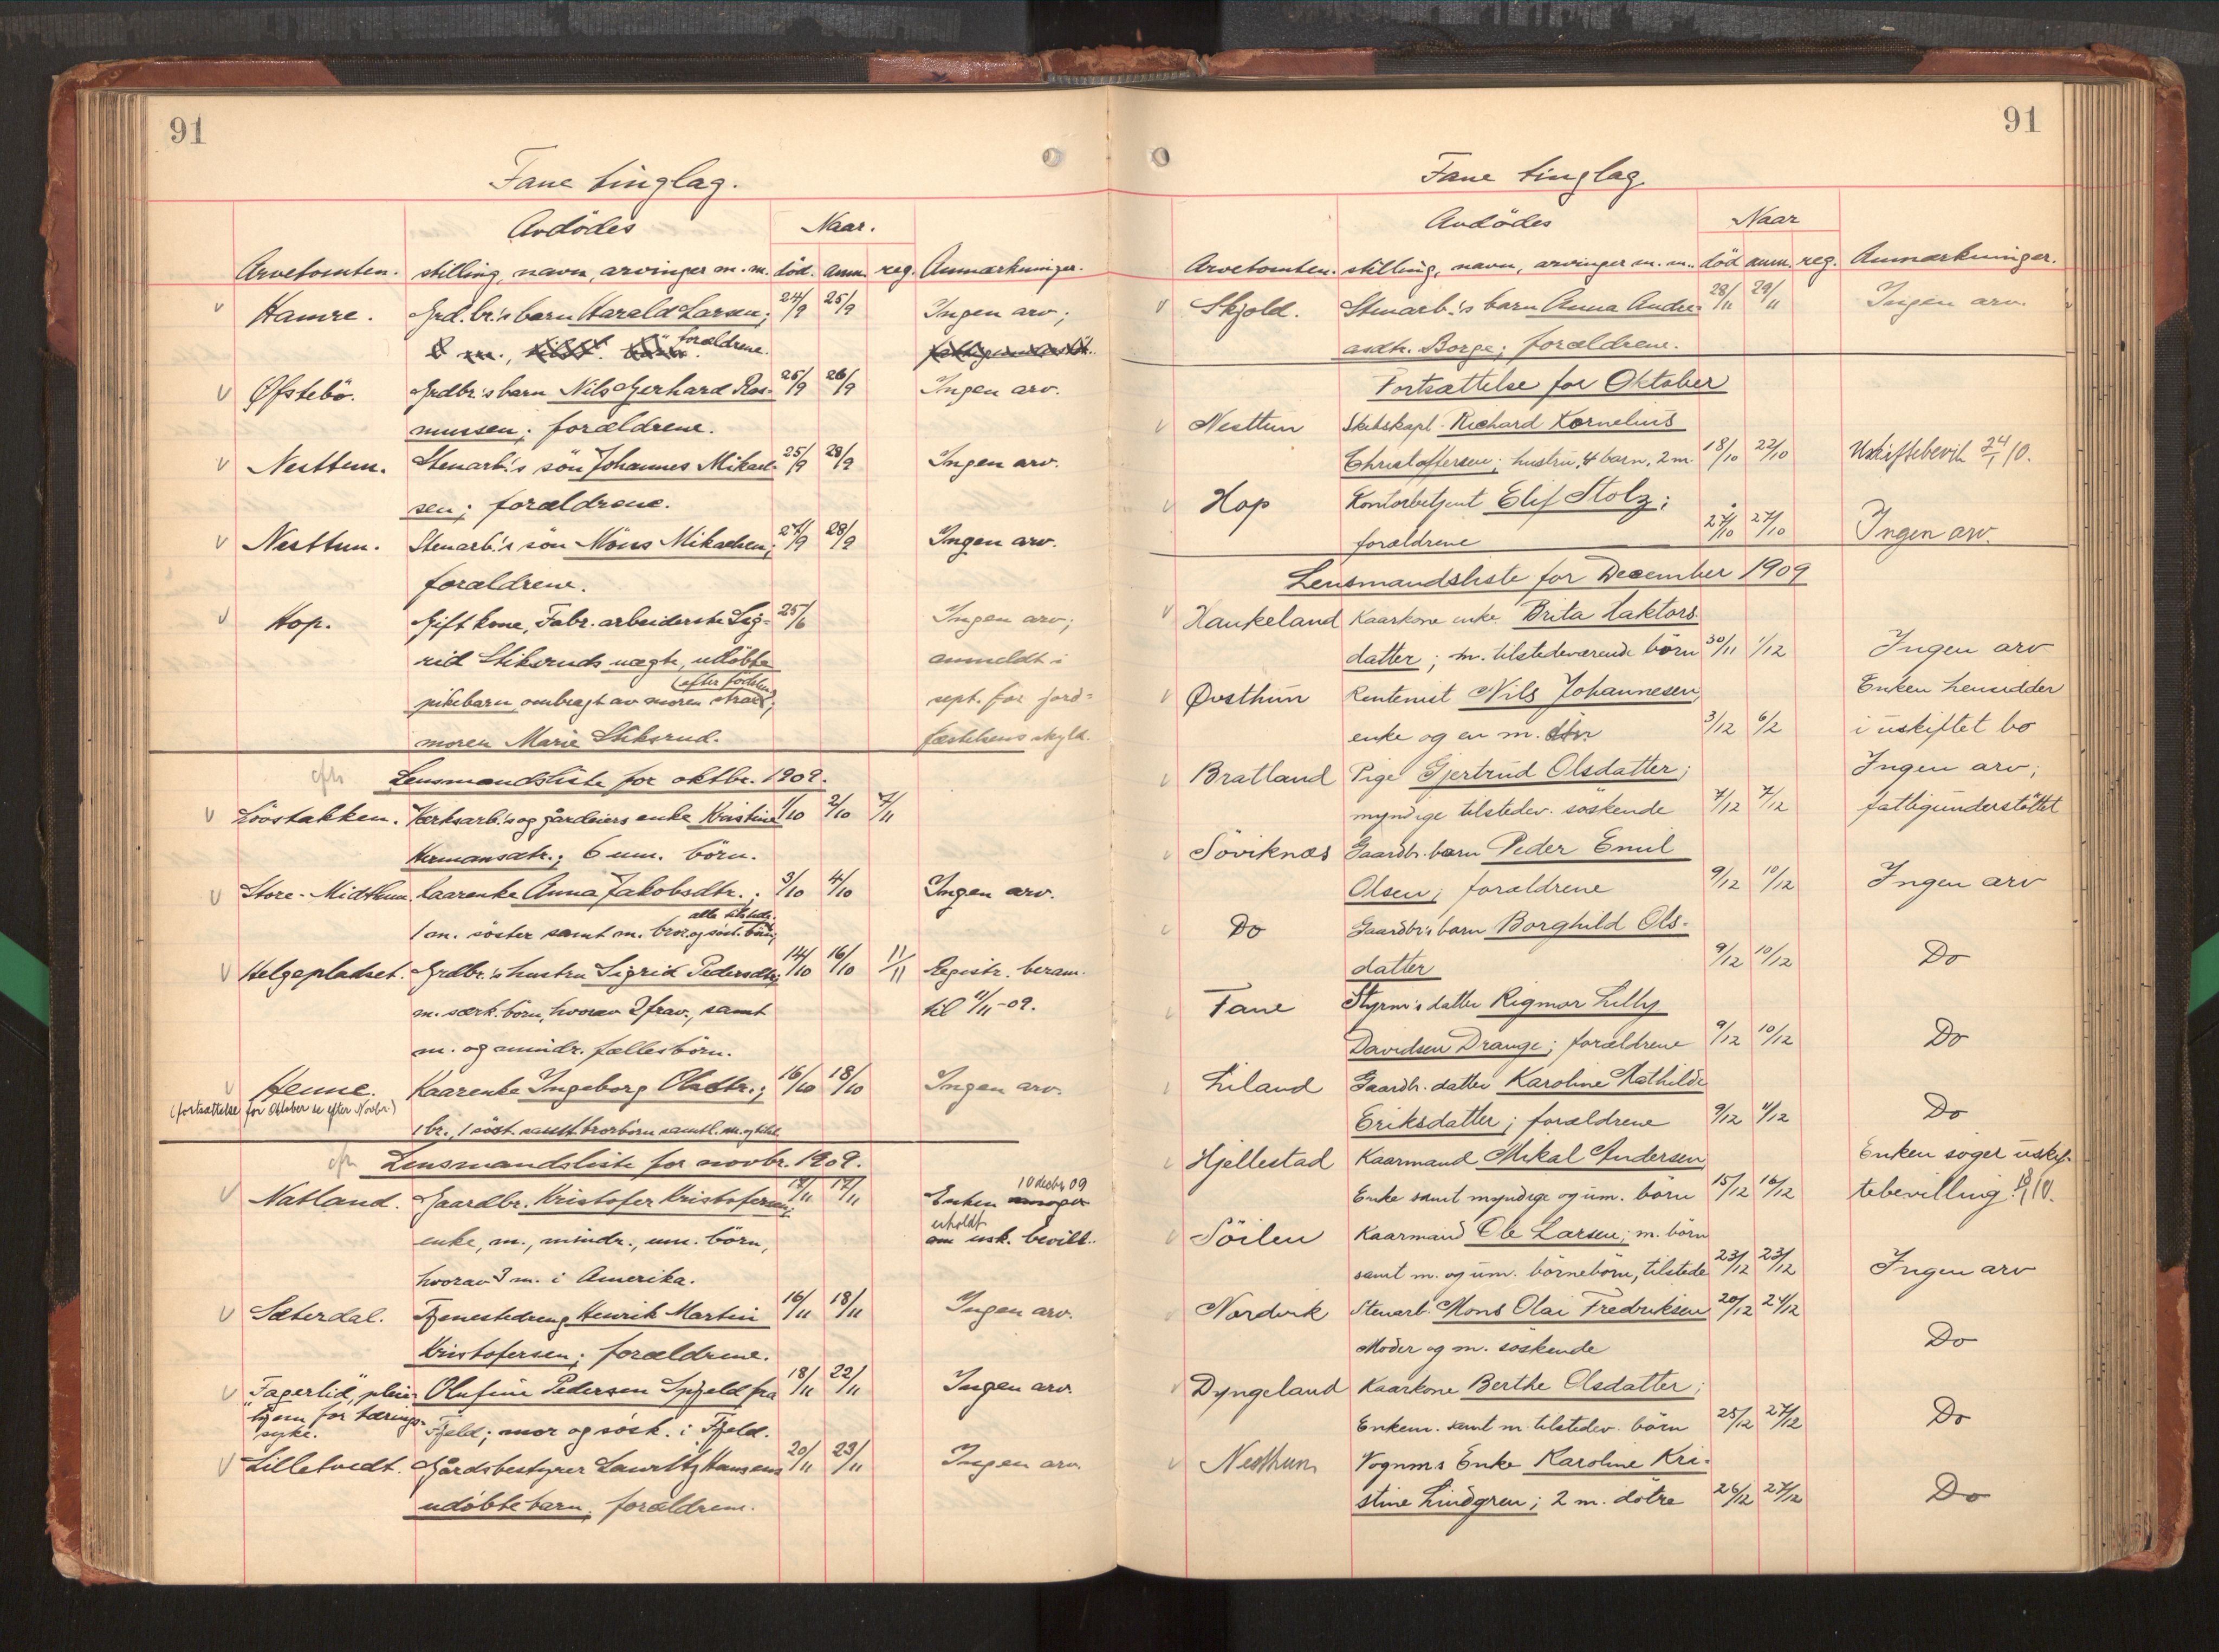 91
Fane tinglag.
Avdödes
Naar.
Arvetomten. stilling, navn, arvinger m. m. död. anm. reg. Anmærkninger.
Hamre. Grd.br.'s barn Harald Larsen; 24/9 25/9 Ingen arv;
forældrene.
Øfstebö. Grdbr.'s barn Nils Gerhard Ras- 25/9 26/9 Ingen arv.
mussen; forældrene.
Nesttun. Stenarb.'s sön Johannes Mikael- 25/9 28/9 Ingen arv.
sen; forældrene.
Nesttun. Stenarb.'s sön Möns Mikaelsen; 27/9 28/9 Ingen arv.
forældrene.
Hop. Gift kone, Fabr. arbeiderske Sig- 25/6 Ingen arv;
rid Stiksruds uægte, udöbte anmeldt i
(efter födselen)
pikebarn, ombragt av moren straks; sept. for jord-
moren Marie Stiksrud. fæstelsens skyld.
Lensmandsliste for oktbr. 1909.
Lövstakken. Værksarb.'s og gårdeiers enke Kristine 1/10 2/10 7/11
Hermansdtr.; 6 um. börn.
Store-Midttun. Kaarenke Anna Jakobsdtr.; 3/10 4/10 Ingen arv.
alle tilstede.
1 m. söster samt m. bror og söst. börn;
Helgepladset. Grdbr.'s hustru Sigrid Pedersdtr; 14/10 16/10 11/11 Registr. beram.
m. særk. börn, hvorav 2 frav., samt til 11/11-09.
m. og mindr. fællesbörn.
Henne. Kaarenke Ingeborg Olsdtr.; 16/10 18/10 Ingen arv.
(fortsættelse for Oktober se efter Novbr.)
1 br., 1 söst. samt brorbörn samtl. m. og tilst.
Lensmandsliste for novbr. 1909.
10 decbr 09
Natland. Gaardbr. Kristofer Kristofersen; 17/11 17/11 Enken
erholdt
enke, m., mindr., um. börn, usk. bevill.
hvorav 3 m. i Amerika.
Sæterdal. Tjenestedreng Henrik Martin 16/11 18/11 Ingen arv.
Kristofersen; forældrene.
"Fagerlid", pleie- Olufine Pedersen Spjeld fra 18/11 22/11 Ingen arv.
hjem for tærings-
syke. Fjeld; mor og sösk. i Fjeld.
Lilletvedt. Gårdsbestyrer Lauritz Hansens 20/11 23/11 Ingen arv.
udöbte barn; forældrene.
91
Fane tinglag
Avdödes
Naar
Arvetomten. stilling, navn, arvinger m. m. död anm. reg. Anmærkninger.
Skjold. Stenarb.'s barn Anna Andre- 28/11 29/11 Ingen arv.
asdtr. Borge; forældrene.
Fortsættelse for Oktober
Nesttun Skibskapt. Richard Kornelius
Christoffersen; hustru, 4 barn, 2 m. 18/10 22/10 Uskiftebevilk 24/1 10.
Hop Kontorbetjent Elif Stolz;
forældrene 27/10 27/10 Ingen arv.
Lensmandsliste for December 1909
Haukeland Kaarkone enke Brita Haktors-
datter; m. tilstedeværende börn 30/11 1/12 Ingen arv
Øvsthun Rentenist Nils Johannesen, Enken hensidder
enke og en m. sön 3/12 6/2 i uskiftet bo
Bratland Pige Gjertrud Olsdatter; Ingen arv;
myndige tilstedev. söskende 7/12 7/12 fattigunderstöttet
Söviknæs Gaardb. barn Peder Emil
Olsen; forældrene 9/12 10/12 Ingen arv
Do Gaardbr's barn Borghild Ols-
datter 9/12 10/12 Do
Fane Styrm's datter Rigmor Lilly
Davidsen Drange; forældrene 9/12 10/12 Do
Liland Gaardb. datter Karoline Mathilde
Eriksdatter; forældrene 9/12 11/12 Do
Hjellestad Kaarmand Mikal Andersen Enken söger uskif-
Enke samt myndige og um. börn 15/12 16/12 tebevilling.
Söilen Kaarmand Ole Larsen; m. börn
samt m. og um. börnebörn, tilstede 23/12 23/12 Ingen arv
Nordvik Stenarb. Mons Olai Fredriksen 20/12 24/12
Moder og m. söskende Do
Dyngeland Kaarkone Berthe Olsdatter;
Enkem. samt m. tilstedev. börn 25/12 27/12 Do
Nestthun Vognm's Enke Karoline Kri-
stine Lindgren; 2 m. dötre 26/12 27/12 Do